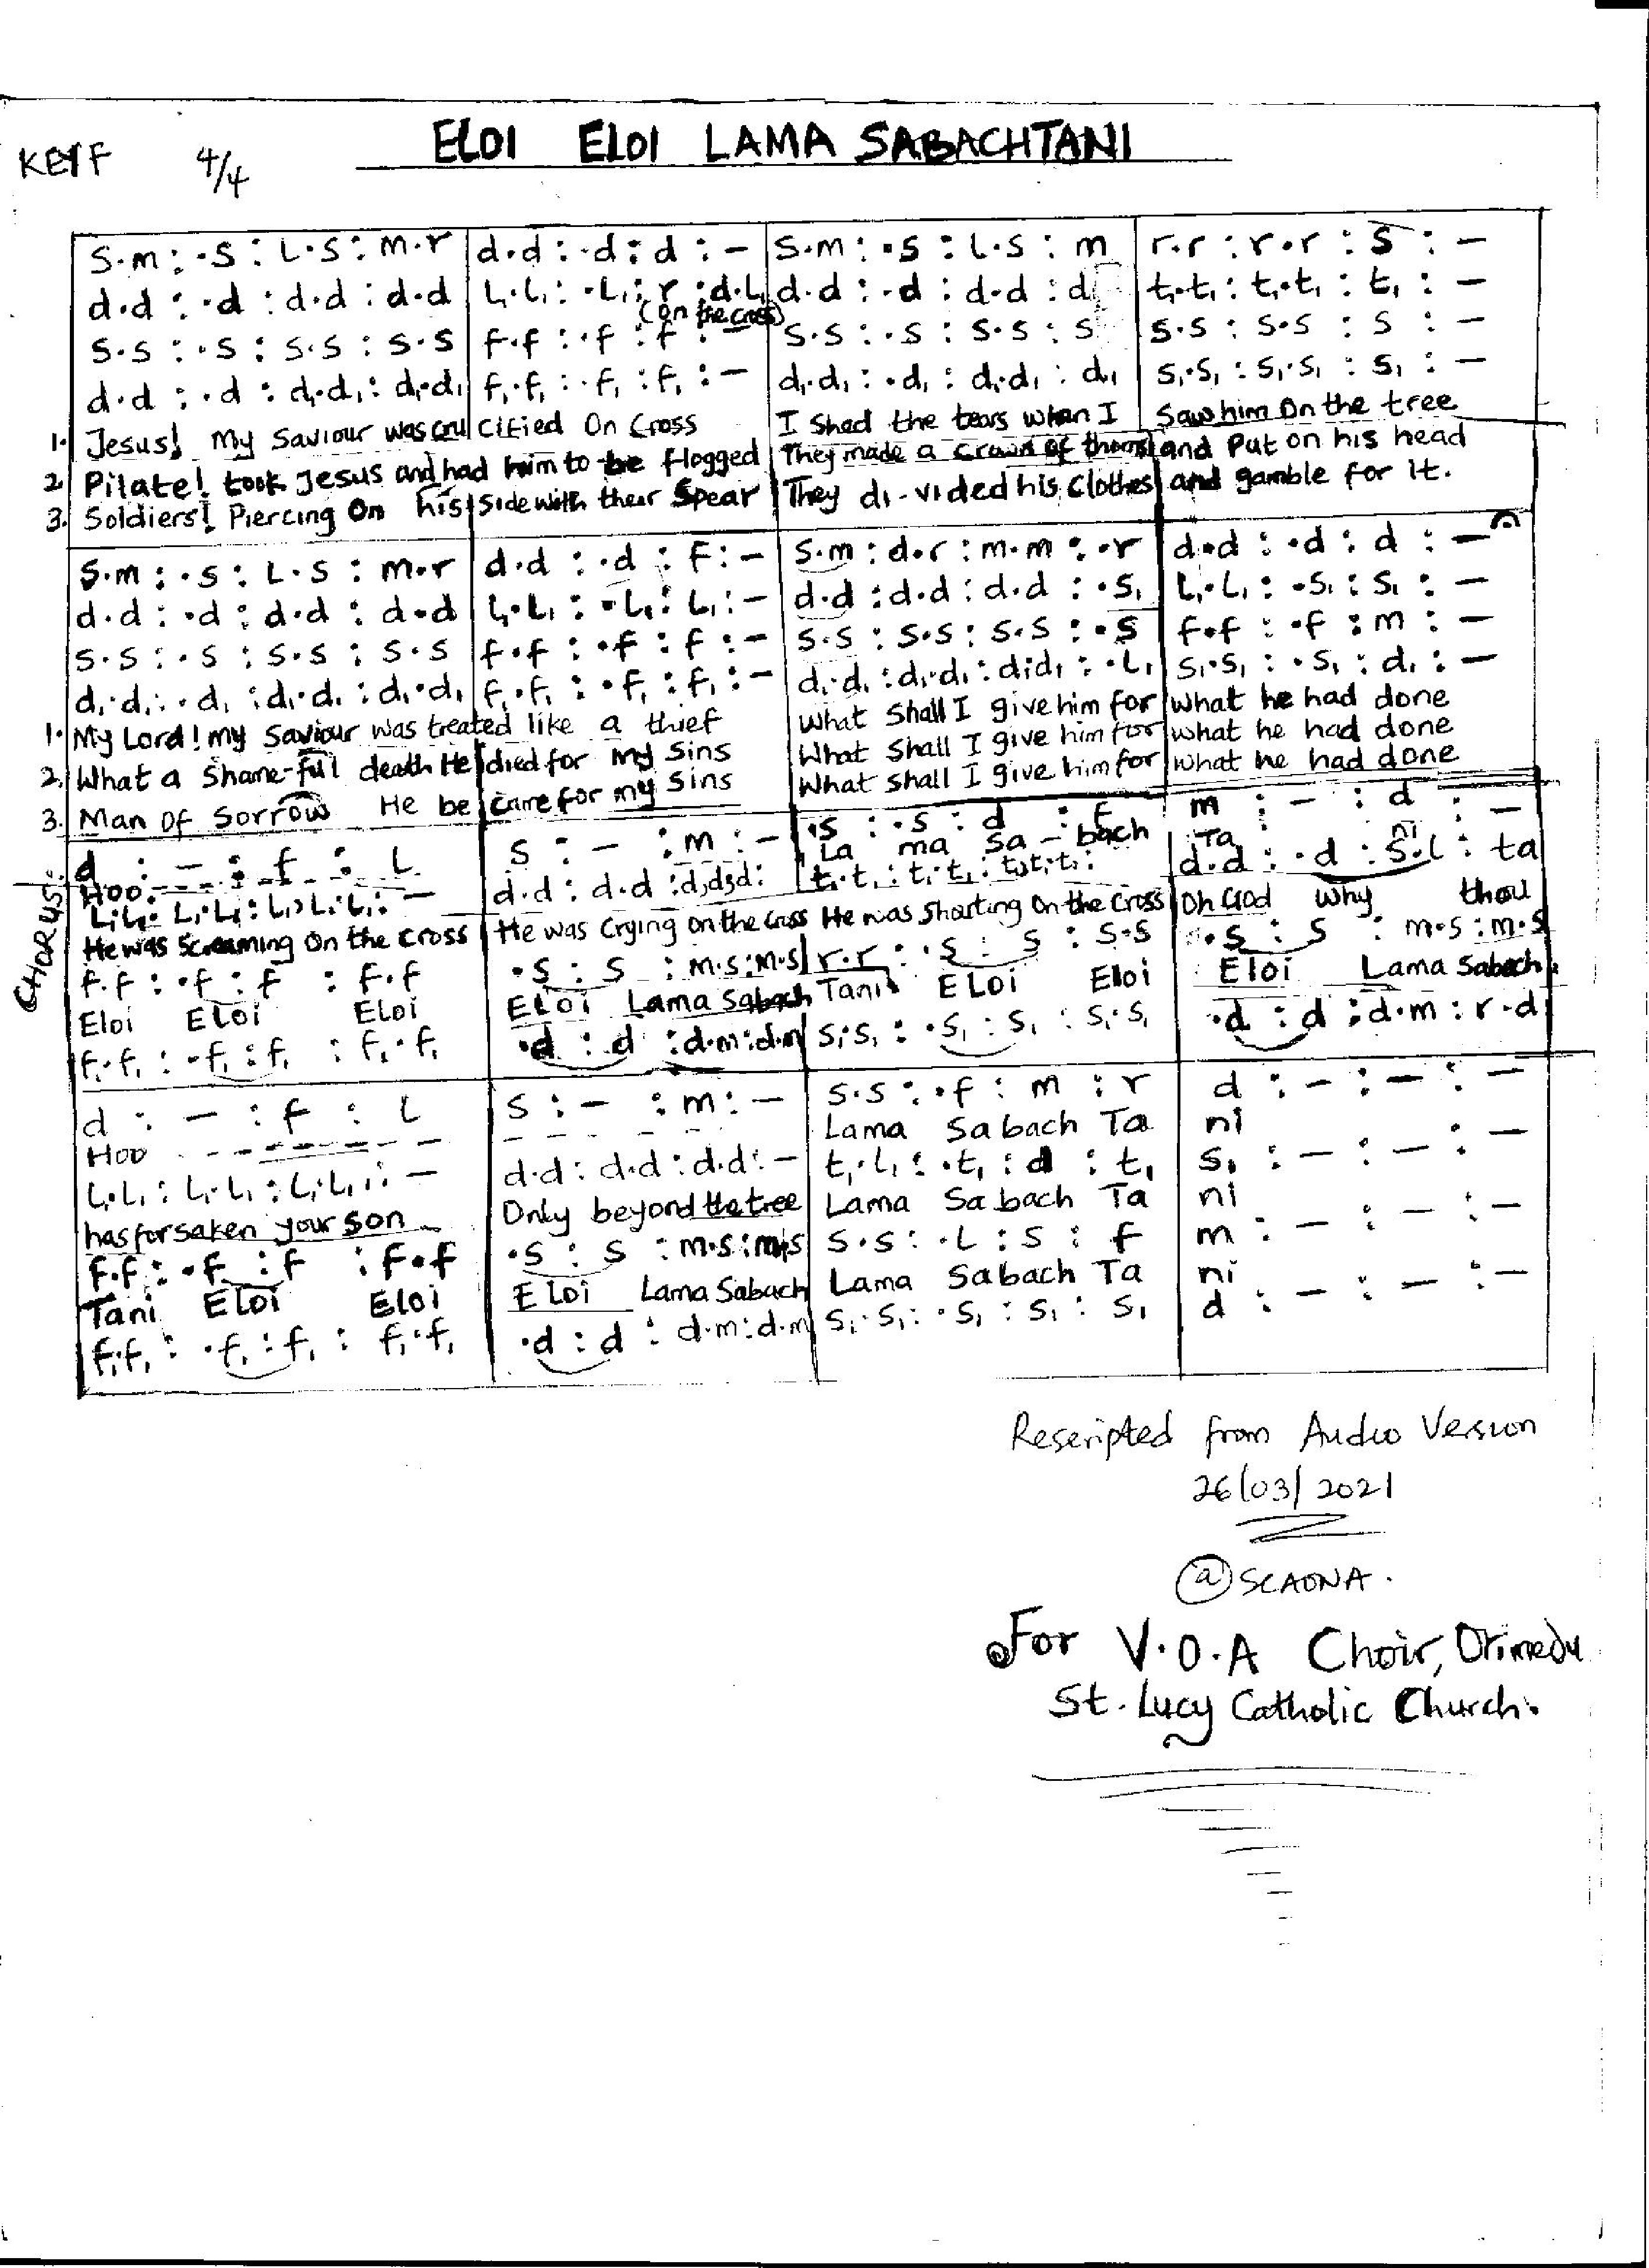 ELOI ELOI LAMA SABACHTANI
KEY F 4/4
S.m : .S : L.S : m.r | d.d : .d : d : – | S.m : .S : L.S : m | r.r : r.r : S : –
d.d : .d : d.d : d.d | L₁.L₁ : .L₁ : r : d.L₁ | d.d : .d : d.d : d | t₁.t₁ : t₁.t₁ : t₁ : –
(on the cross)
S.S : .S : S.S : S.S | f.f : .f : f : – | S.S : .S : S.S : S | S.S : S.S : S : –
d.d : .d : d₁.d₁ : d₁.d₁ | f₁.f₁ : .f₁ : f₁ : – | d₁.d₁ : .d₁ : d₁.d₁ : d₁ | S₁.S₁ : S₁.S₁ : S₁ : –
1. Jesus! My Saviour was cru | cified On Cross | I Shed the tears when I | Saw him On the tree
2. Pilate! took Jesus and had him to be flogged | They made a crown of thorns | and Put on his head
3. Soldiers! Piercing On his | side with their Spear | They di-vided his Clothes | and gamble for it.
S.m : .S : L.S : m.r | d.d : .d : F : – | S.m : d.r : m.m : .r | d.d : .d : d : –
d.d : .d : d.d : d.d | L₁.L₁ : .L₁ : L₁ : – | d.d : d.d : d.d : .S₁ | L₁.L₁ : .S₁ : S₁ : –
S.S : .S : S.S : S.S | f.f : .f : f : – | S.S : S.S : S.S : .S | f.f : .f : m : –
d₁.d₁ : .d₁ : d₁.d₁ : d₁.d₁ | f₁.f₁ : .f₁ : f₁ : – | d₁.d₁ : d₁.d₁ : d₁d₁ : .L₁ | S₁.S₁ : .S₁ : d₁ : –
1. My Lord! my Saviour was treated like a thief | What Shall I give him for | what he had done
2. What a Shame-full death He | died for my Sins | What Shall I give him for | what he had done
3. Man Of Sorrow He be | came for my Sins | What Shall I give him for | what he had done
CHORUS:
d : – : f : L | S : – : m : – | .S : .S : d : F | m : – : d : –
Hoo | La ma Sa - bach | Ta ni
L₁.L₁ : L₁.L₁ : L₁.L₁.L₁ : – | d.d : d.d : d,d,d : | t₁.t₁ : t₁.t₁ : t₁t₁t₁ : | d.d : .d : S.l : ta
He was Screaming On the cross | He was Crying on the cross | He was Shouting On the Cross | Oh God why thou
f.f : .f : f : f.f | .S : S : m.s : m.s | r.r : .S : S : S.S | .S : S : m.s : m.s
Eloi Eloi Eloi | Eloi Lama Sabach | Tani Eloi Eloi | Eloi Lama Sabach
f₁.f₁ : .f₁ : f₁ : f₁.f₁ | .d : d : d.m : d.m | S₁S₁ : .S₁ : S₁ : S₁.S₁ | .d : d : d.m : r.d
d : – : f : L | S : – : m : – | S.S : .f : m : r | d : – : – : –
Hoo | Lama Sabach Ta | ni
L₁.L₁ : L₁.L₁ : L₁.L₁ : – | d.d : d.d : d.d : – | t₁.L₁ : .t₁ : d : t₁ | S₁ : – : – : –
has forsaken your son | Only beyond the tree | Lama Sabach Ta | ni
f.f : .f : f : f.f | .S : S : m.s : m.s | S.S : .L : S : f | m : – : – : –
Tani Eloi Eloi | Eloi Lama Sabach | Lama Sabach Ta | ni
f₁.f₁ : .f₁ : f₁ : f₁.f₁ | .d : d : d.m : d.m | S₁.S₁ : .S₁ : S₁ : S₁ | d : – : – : –
Rescripted from Audio Version
26/03/2021
@SCAONA.
For V.O.A Choir, Orimedu
St. Lucy Catholic Church.